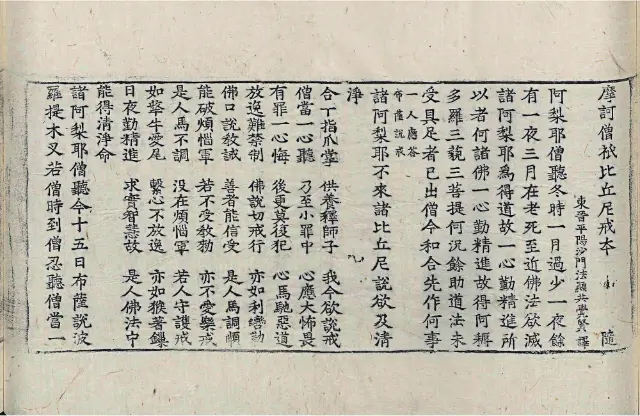 摩訶僧祇比丘尼戒本 隨
東晉平陽沙門法顯共覺賢譯
阿梨耶僧聽冬時一月過少一夜餘
有一夜三月在老死至近佛法欲滅
諸阿梨耶為得道故一心勤精進所
以者何諸佛一心勤精進故得阿耨
多羅三藐三菩提何況餘助道法未
受具足者已出僧今和合先作何事
一人應答
布薩說戒
諸阿梨耶不來諸比丘尼說欲及清
淨
合十指爪掌 供養釋師子 我今欲說戒
僧當一心聽 乃至小罪中 心應大怖畏
有罪一心悔 後更莫復犯 心馬馳惡道
放逸難禁制 佛說切戒行 亦如利轡勒
佛口說教誡 善者能信受 是人馬調順
能破煩惱軍 若不受教勅 亦不愛樂戒
是人馬不調 沒在煩惱軍 若人守護戒
如犛牛愛尾 繫心不放逸 亦如猴著鎖
日夜勤精進 求實智慧故 是人佛法中
能得清淨命
諸阿梨耶僧聽今十五日布薩說波
羅提木叉若僧時到僧忍聽僧當一